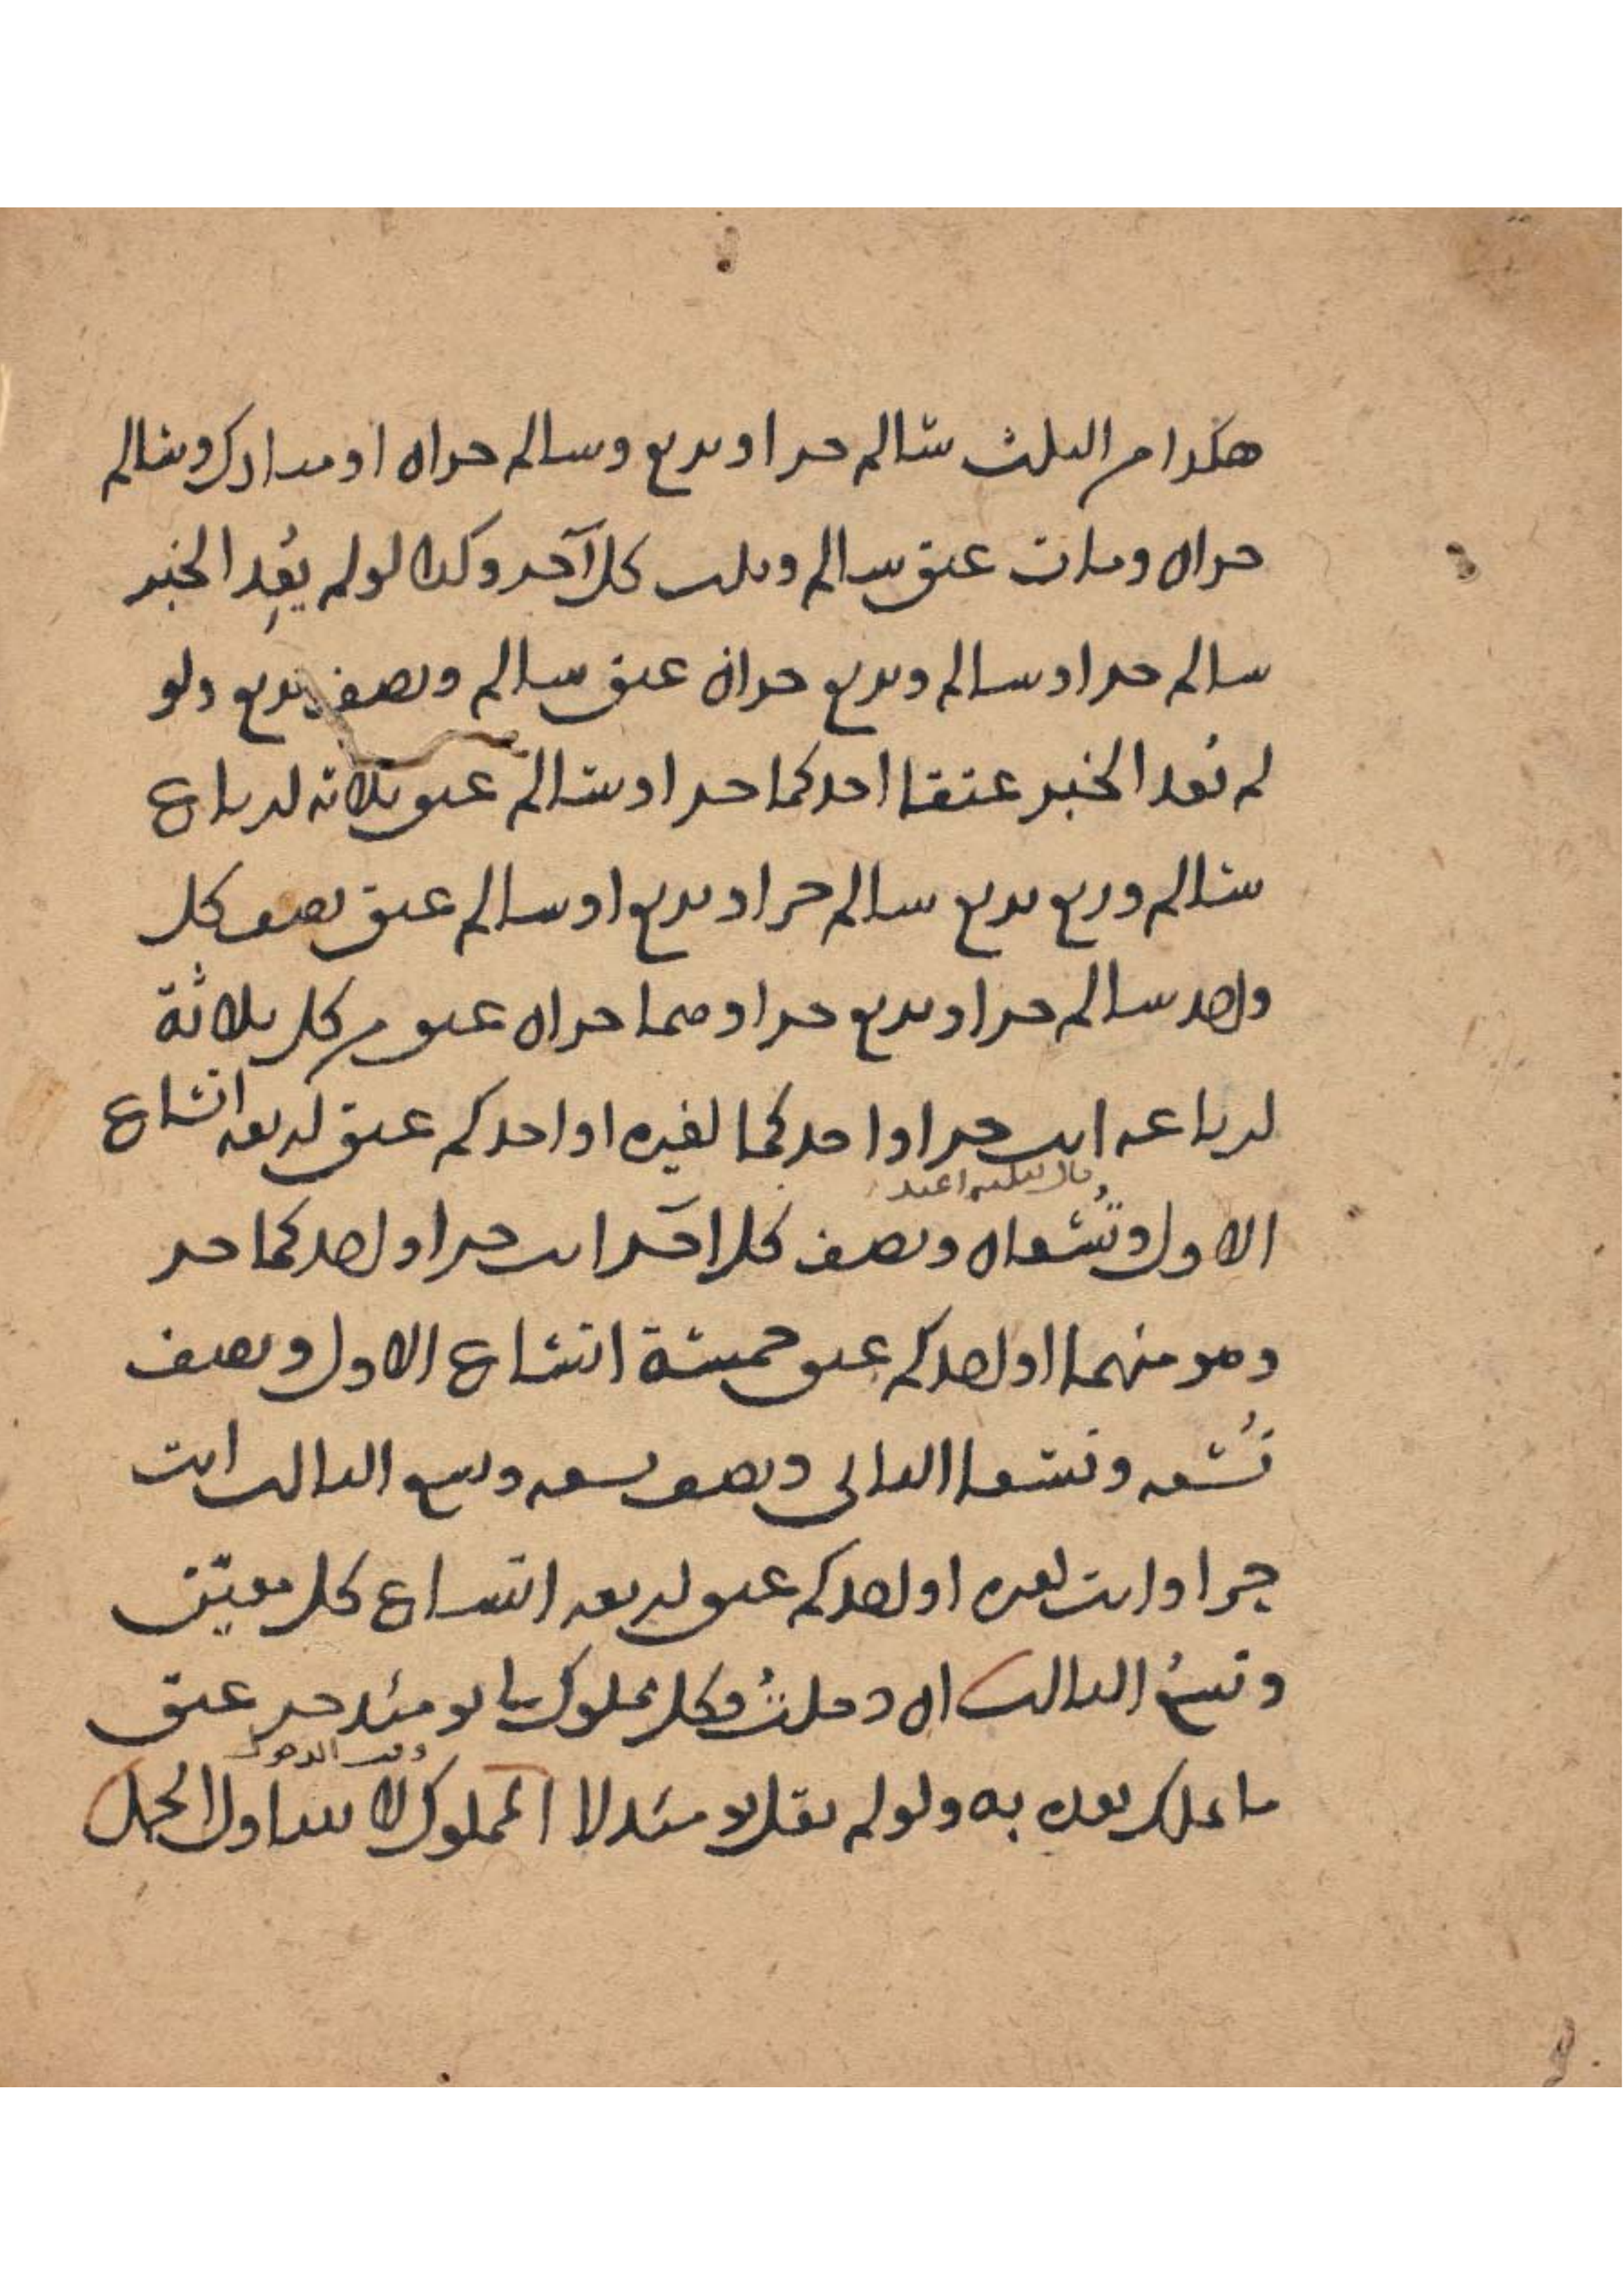 هكذا من الثلث سالم حر او بديع وسالم حران او مبارك وسالم
حران ومات عتق سالم وثلث كل آخر وكذا لو لم يُعِد الخبر
سالم حر او سالم وبديع حران عتق سالم ونصف بديع ولو
لم يُعد الخبر عتقا احدكما حر او سالم عتق ثلاثة ارباع
سالم وربع بديع سالم حر او بديع او سالم عتق نصف كل
واحد سالم حر او بديع حر او هما حران عتق من كل ثلاثة
ارباعه انت حر او احدكما لغيره او احدكم عتق اربعة اتساع
قال لثلثة اعبد
الاول وتُسعاه ونصف كل آخر انت حر او احدكما حر
وهو منهما او احدكم عتق خمسة اتساع الاول ونصف
تُسعه وتسعا الثاني ونصف تسعه وتسع الثالث انت
حر او انت لغيره او احدكم عتق اربعة اتساع كل معيّن
وتسعُ الثالث ان دخلتُ فكل مملوك لي يومئذ حر عتق
وقت الدخول
ما يملك بعده به ولو لم يقل يومئذ لا المملوك لا يتناول الحمل